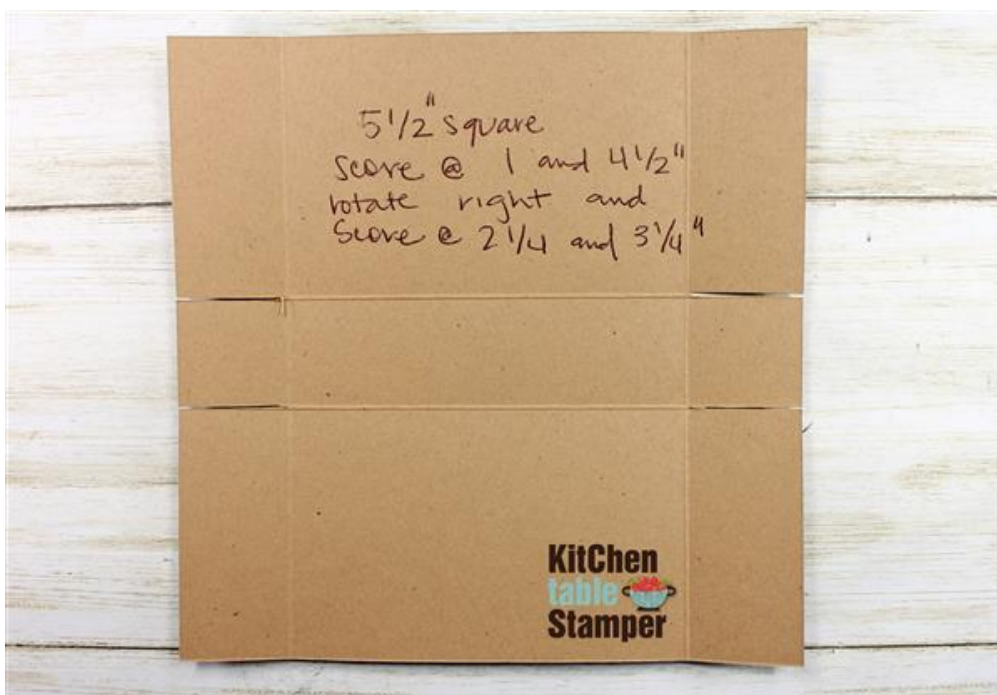 5 1/2" square
Score @ 1 and 4 1/2"
rotate right and
Score @ 2 1/4 and 3 1/4"
KitChen
table
Stamper